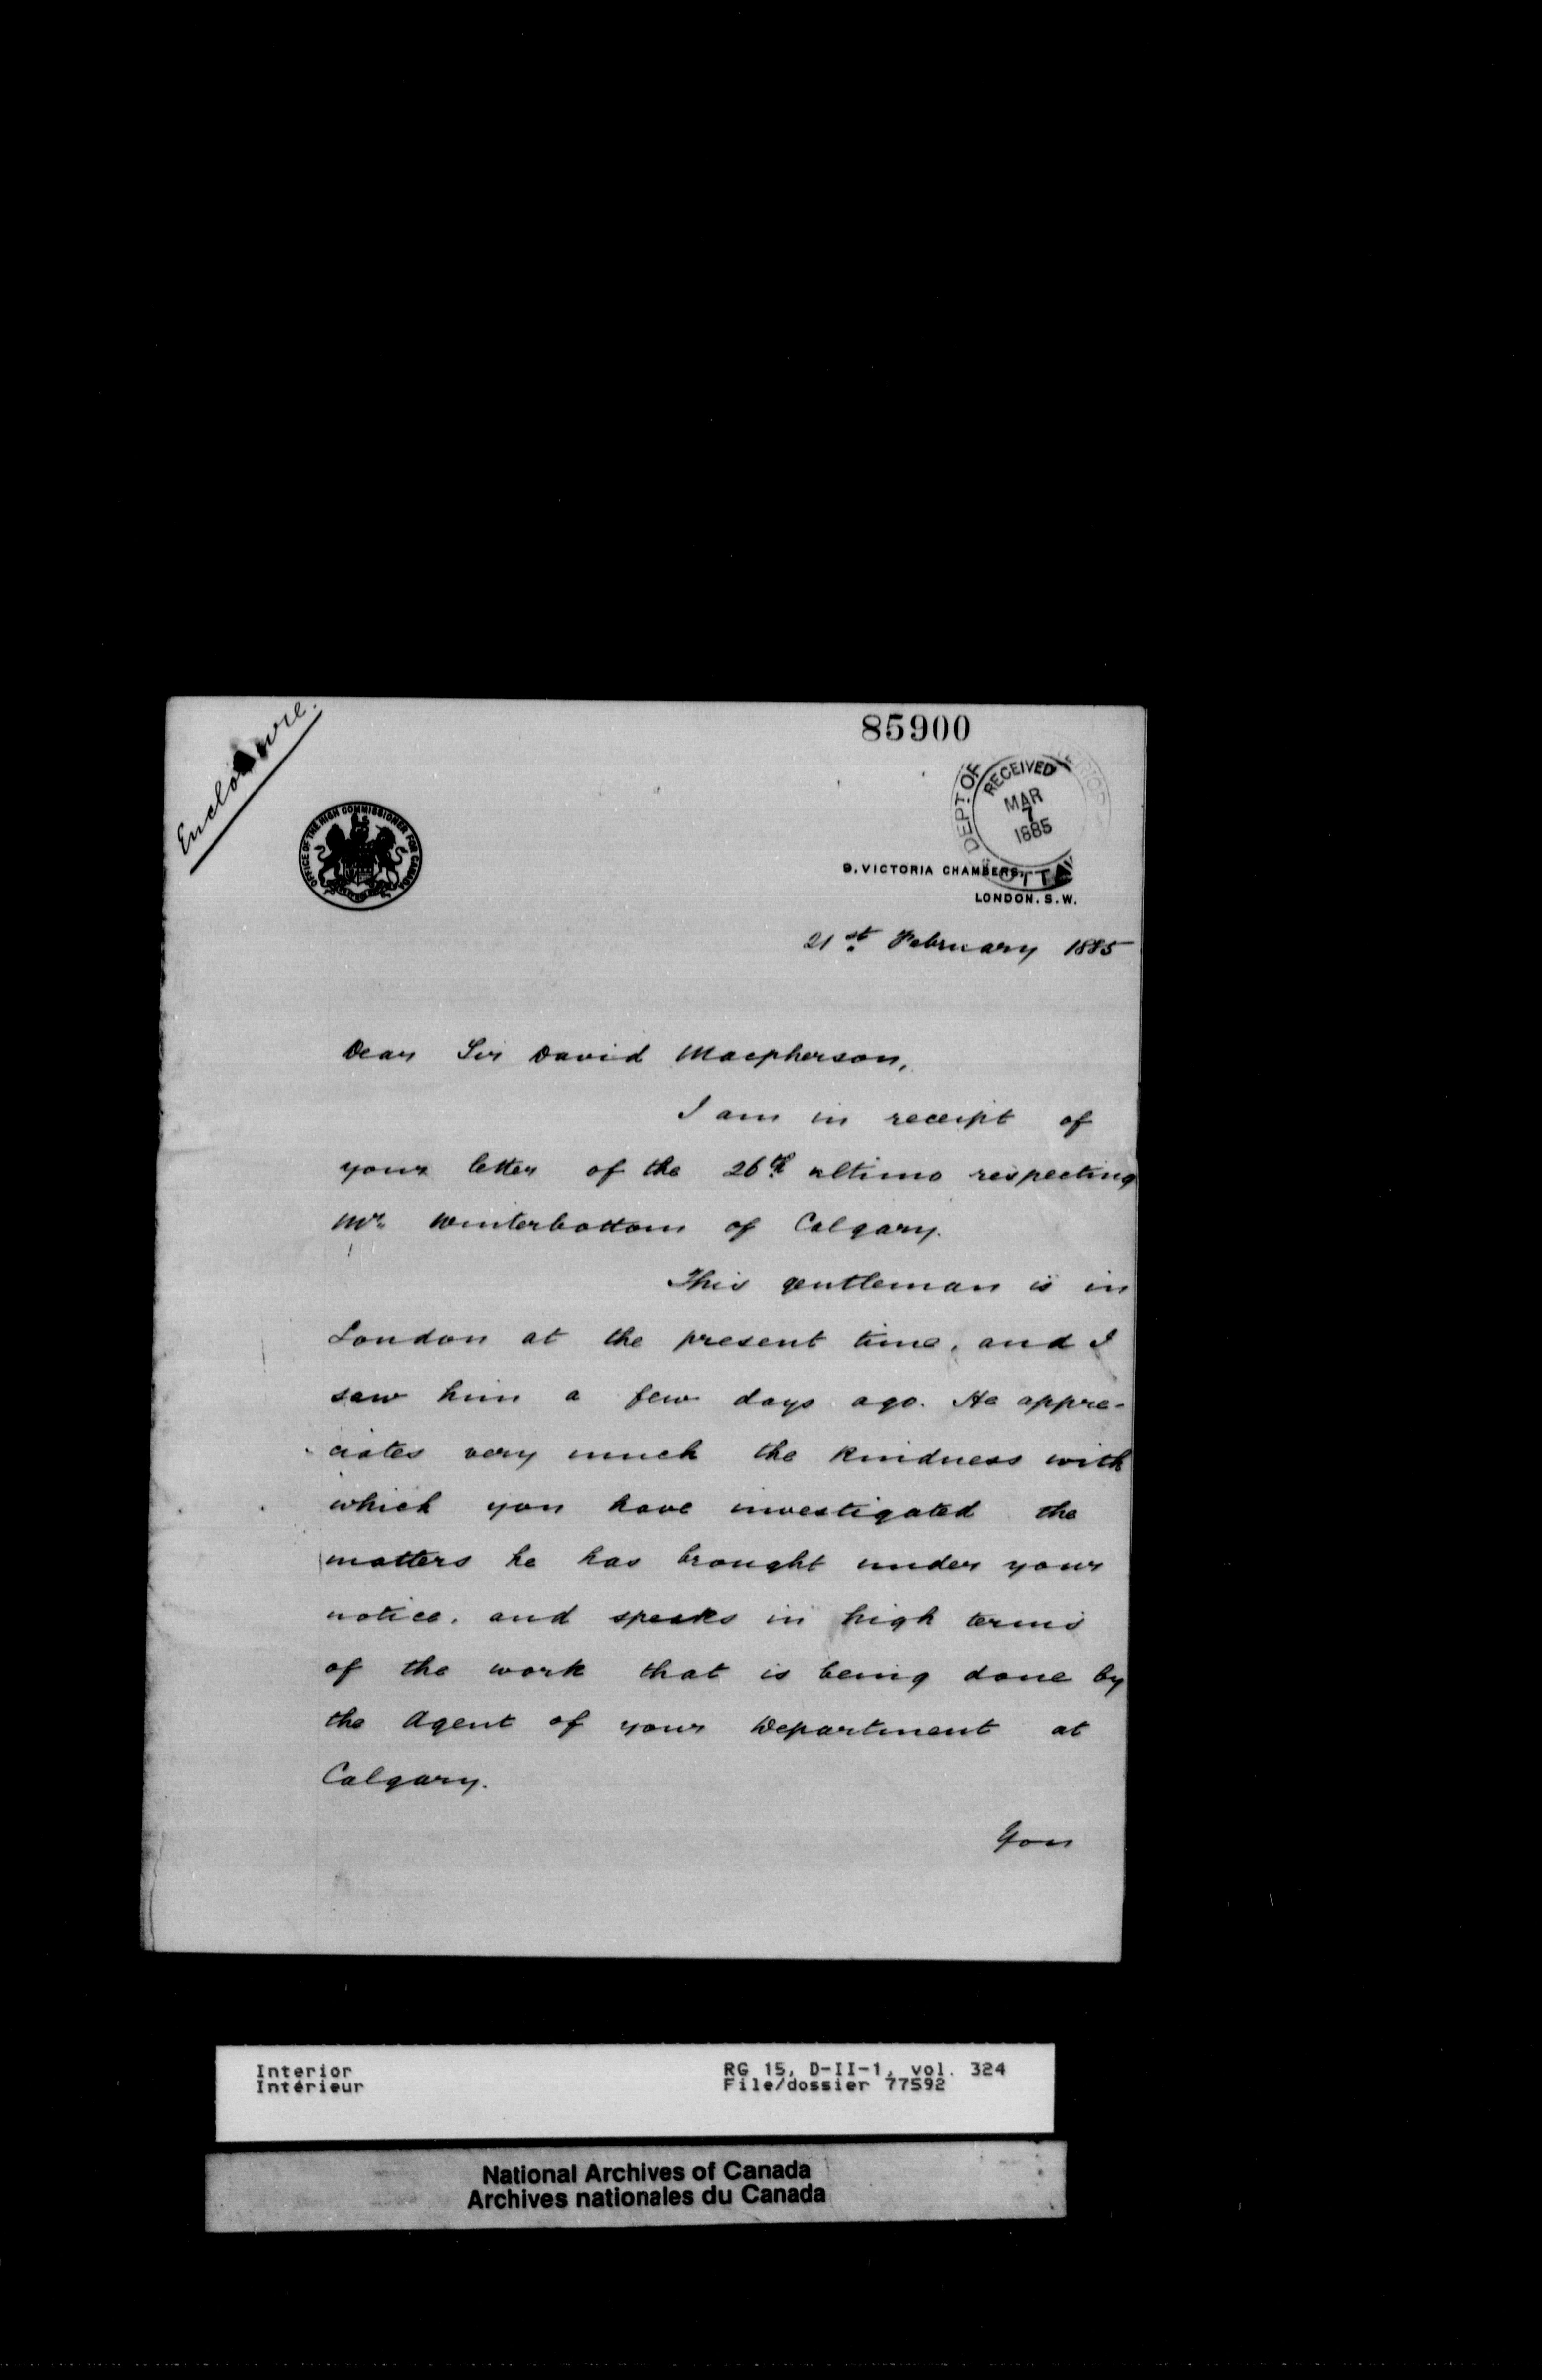 Enclosure.
85900
OFFICE OF THE HIGH COMMISSIONER FOR CANADA
DEPT OF
RECEIVED
MAR
7
1885
9, VICTORIA CHAMBERS,
LONDON. S.W.
21st February 1885
Dear Sir David Macpherson,
I am in receipt of
your letter of the 26th ultimo respecting
Mr. Winterbottom of Calgary.
This gentleman is in
London at the present time, and I
saw him a few days ago. He appre-
ciates very much the kindness with
which you have investigated the
matters he has brought under your
notice, and speaks in high terms
of the work that is being done by
the Agent of your Department at
Calgary.
You
Interior RG 15, D-II-1, vol. 324
Intérieur File/dossier 77592
National Archives of Canada
Archives nationales du Canada